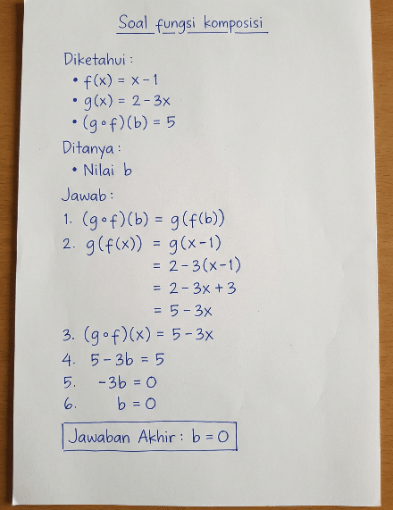 Soal fungsi komposisi
Diketahui :
• f(x) = x - 1
• g(x) = 2 - 3x
• (g∘f)(b) = 5
Ditanya :
• Nilai b
Jawab :
1. (g∘f)(b) = g(f(b))
2. g(f(x)) = g(x-1)
= 2 - 3(x-1)
= 2 - 3x + 3
= 5 - 3x
3. (g∘f)(x) = 5 - 3x
4. 5 - 3b = 5
5. -3b = 0
6. b = 0
Jawaban Akhir : b = 0